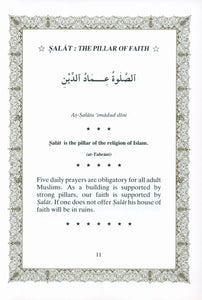 ☆ ṢALĀT : THE PILLAR OF FAITH ☆
اَلصَّلٰوةُ عِمَادُ الدِّيْنِ
Aṣ-Ṣalātu 'imādud dīni
★ ★ ★
Ṣalāt is the pillar of the religion of Islam.
(at-Tabrāni)
★ ★ ★ ★ ★
Five daily prayers are obligatory for all adult
Muslims. As a building is supported by
strong pillars, our faith is supported by
Ṣalāt. If one does not offer Ṣalāt his house of
faith will be in ruins.
★ ★ ★ ★ ★ ★ ★
11